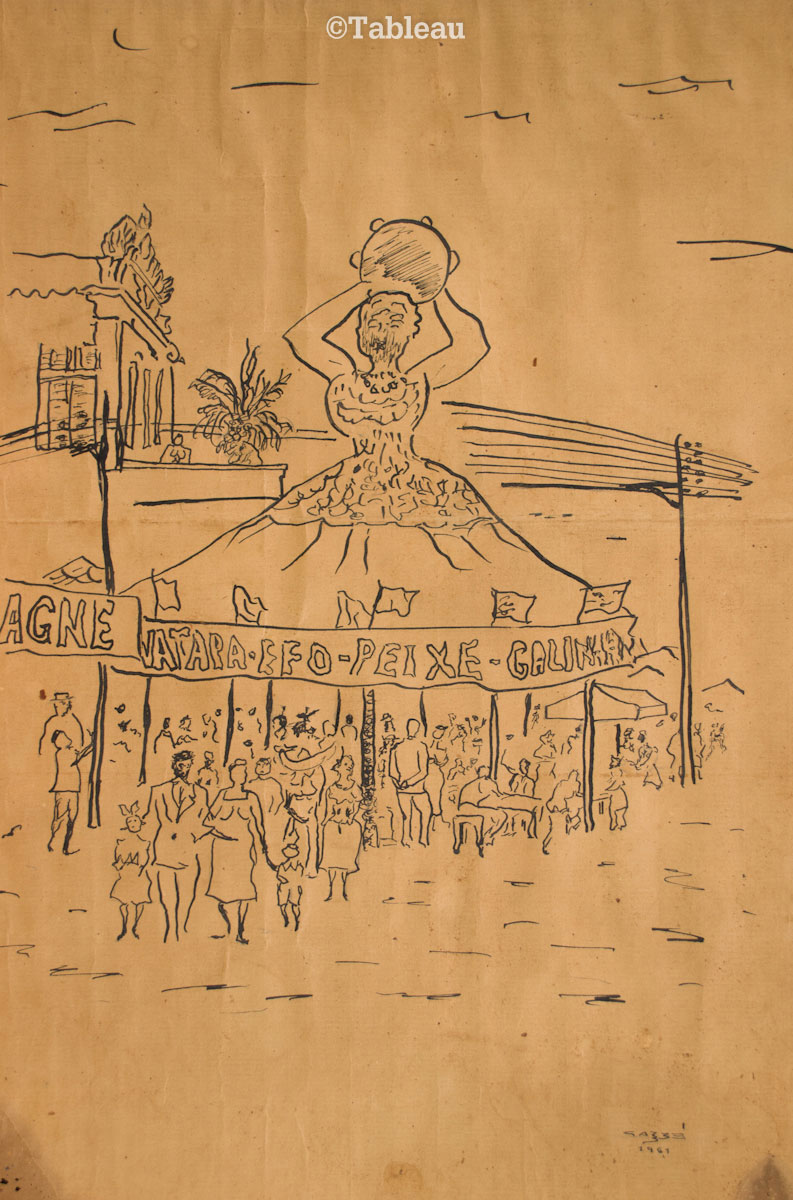 ©Tableau
AGNE
VATAPA·EFO-PEIXE-GALINHA
1961